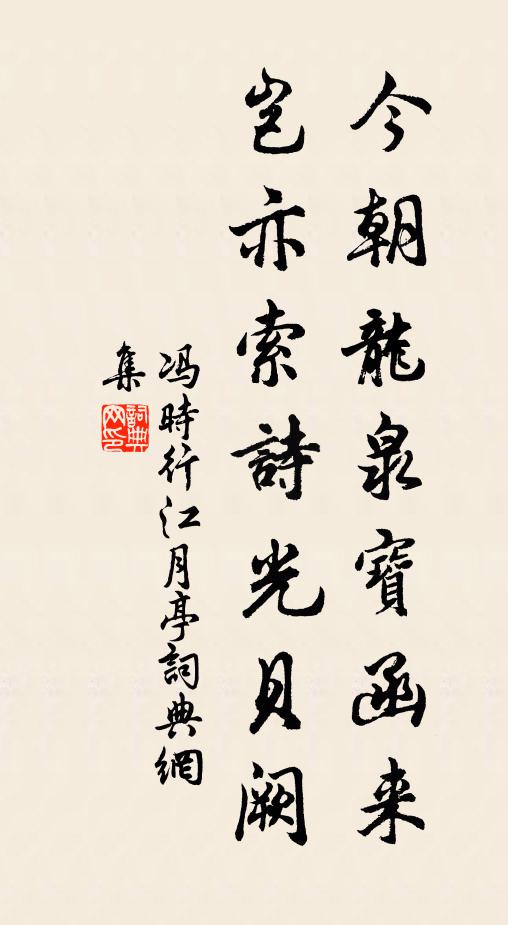 今朝龍泉寶函来
岂亦索詩光貝阙
冯時行江月亭詞典網
集
詞典网印